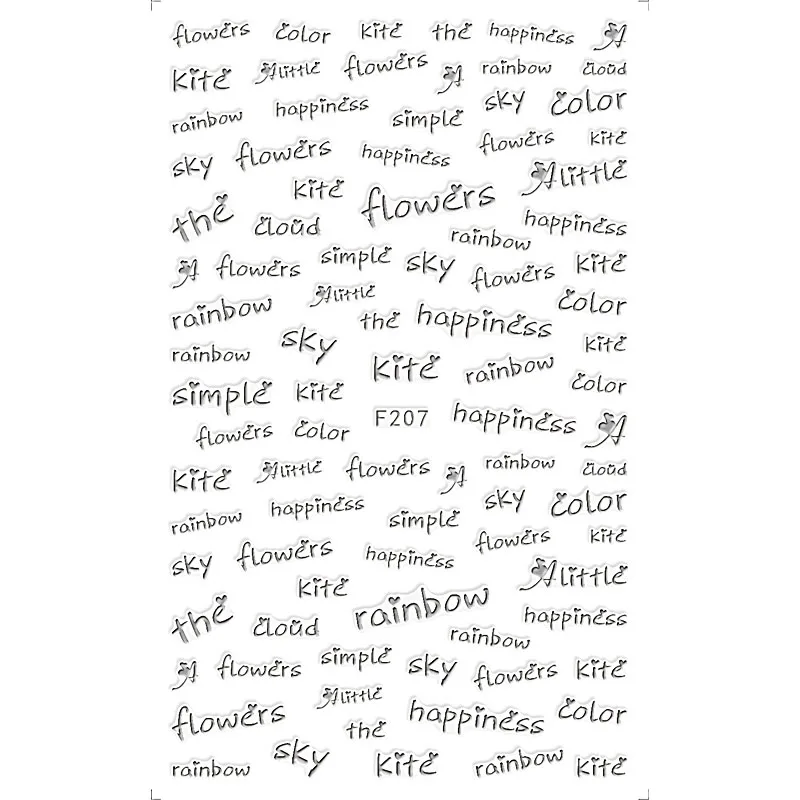 flowers color kite the happiness A
kite A little flowers A rainbow cloud
rainbow happiness simple sky color
sky flowers happiness flowers kite
kite flowers A little
the cloud rainbow happiness
A flowers simple sky flowers kite
rainbow A little the happiness color
rainbow sky kite rainbow kite
simple kite color
flowers color F207 happiness A
kite A little flowers A rainbow cloud
rainbow happiness simple sky color
sky flowers happiness flowers kite
kite rainbow A little
the cloud rainbow happiness
A flowers simple sky flowers kite
flowers A little the happiness color
rainbow sky kite rainbow kite